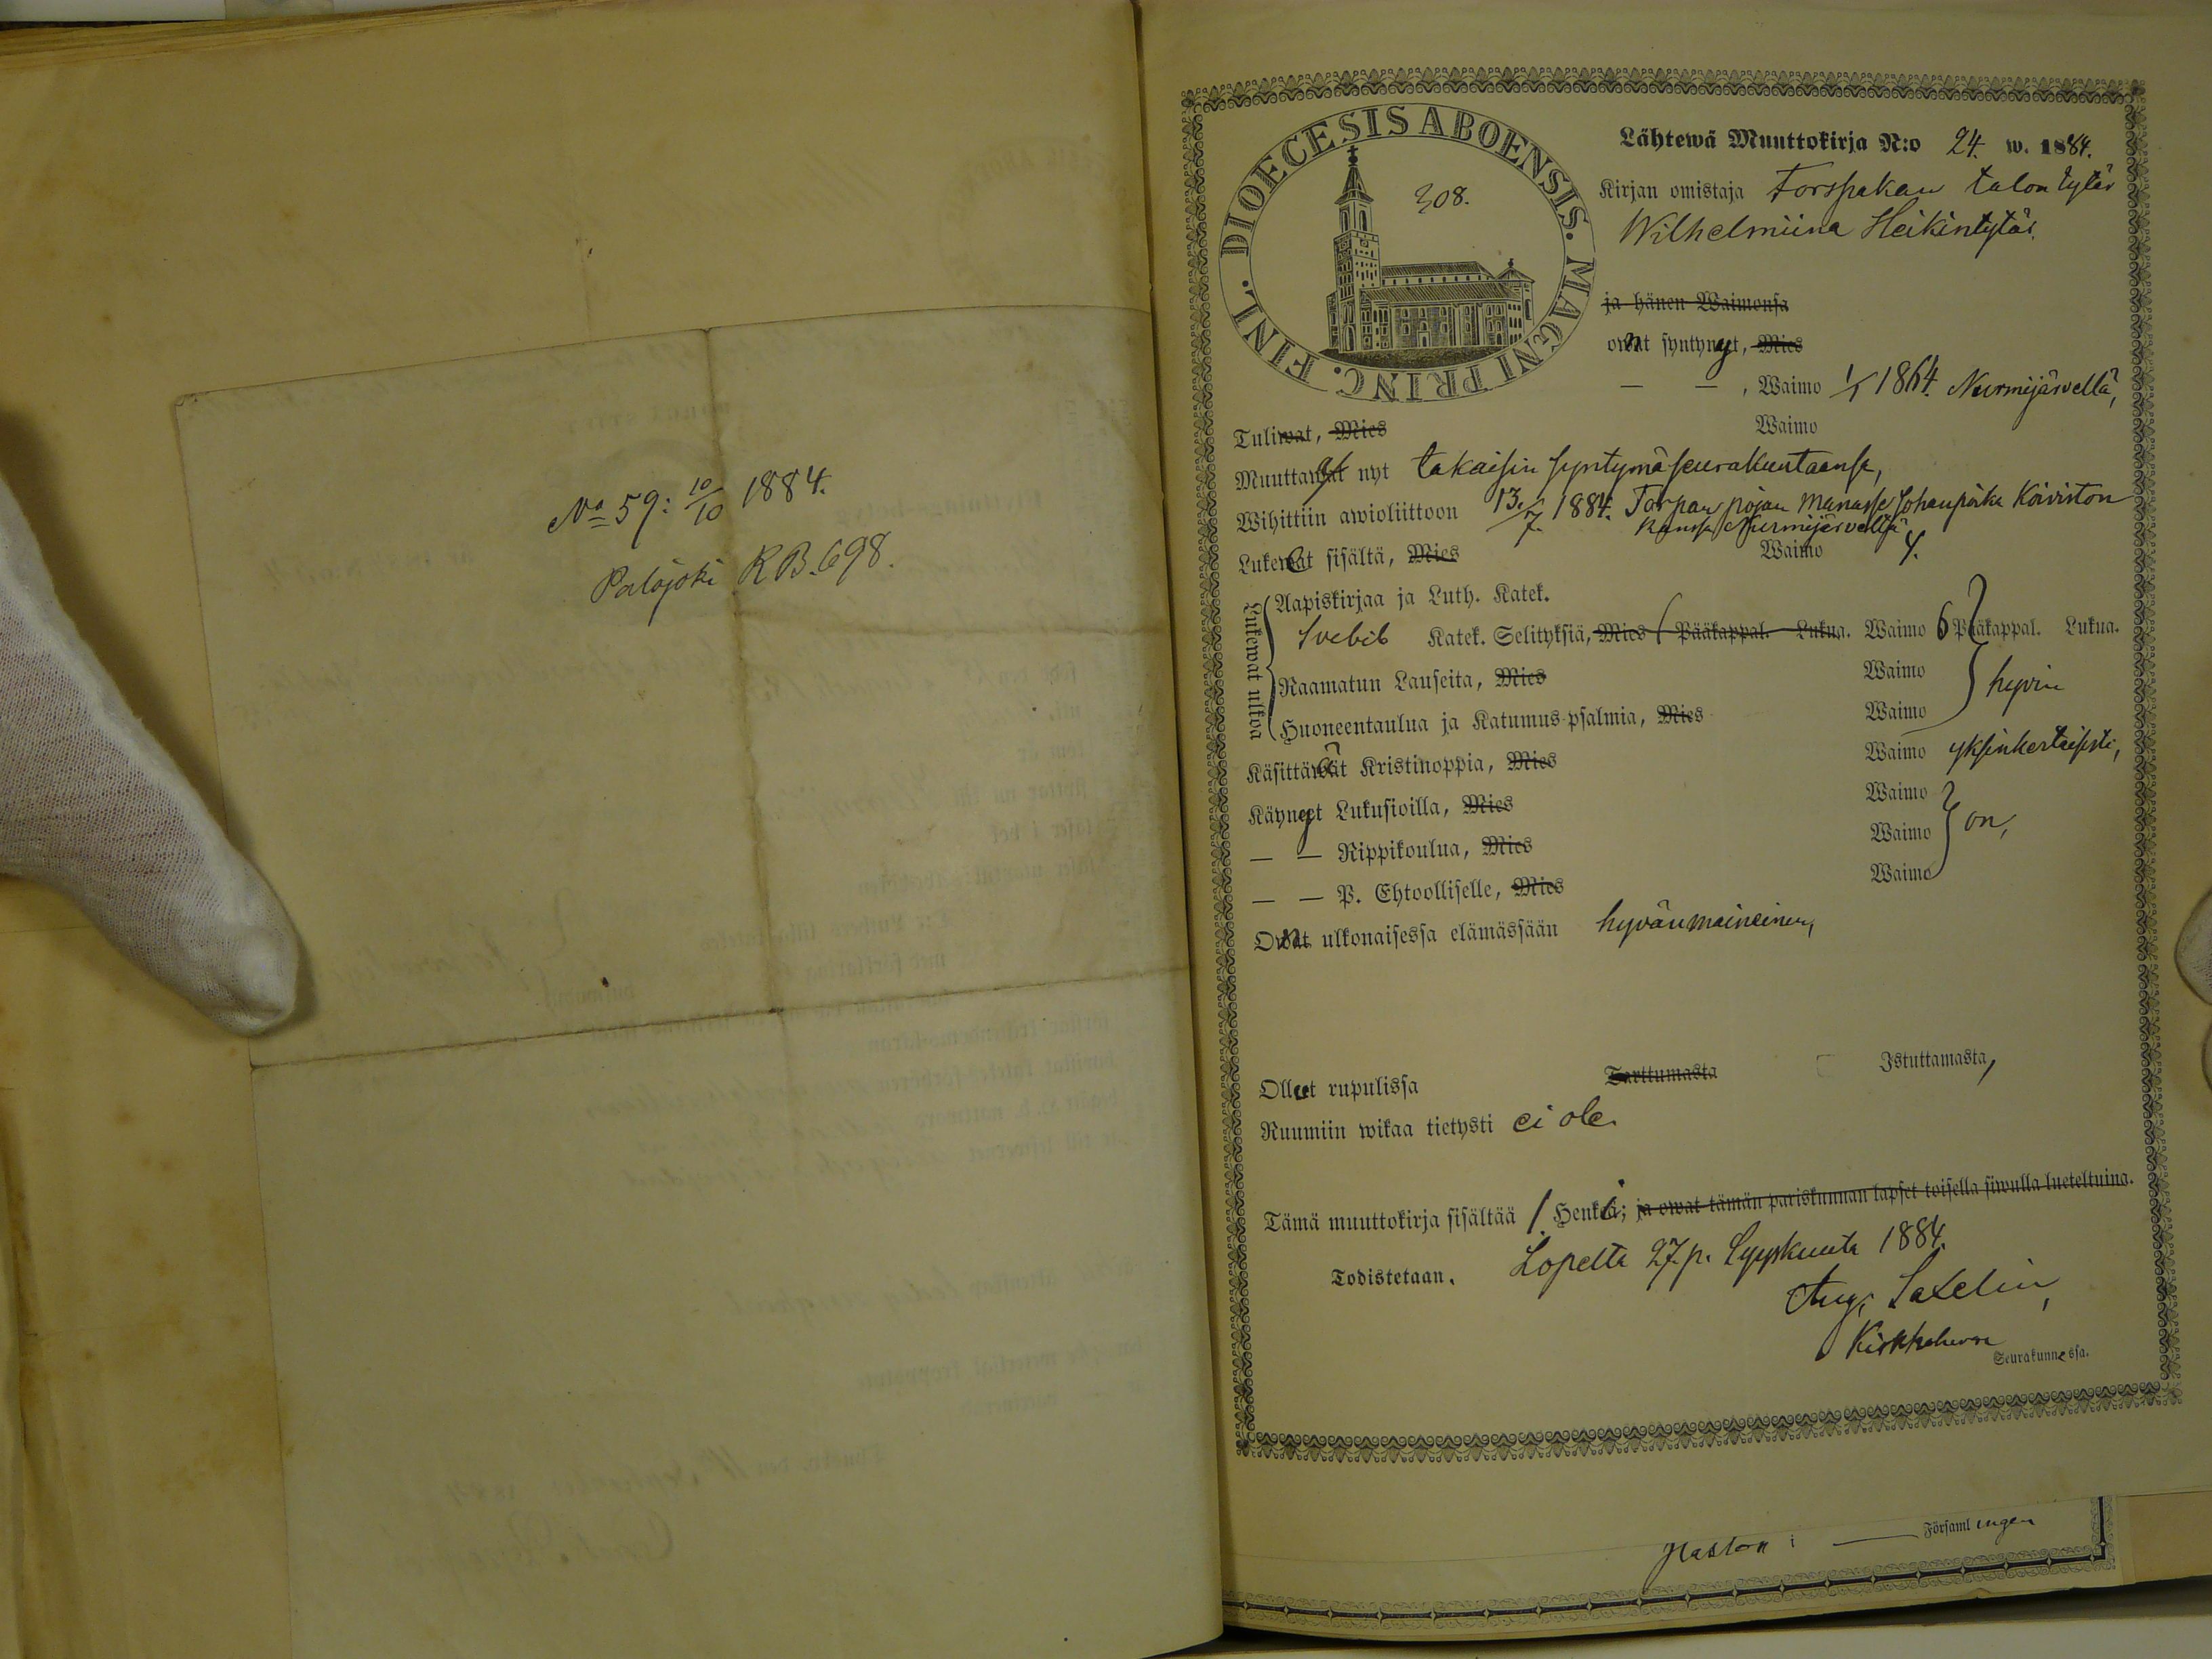 No 59: 10/10 1884.
Palojoki RB. 698.
DIOECESIS ABOENSIS. MAGNI PRINC. FINL.
308.
Lähtewä Muuttokirja N:o 24. w. 1884.
Kirjan omistaja Forspakan talon tytär
Wilhelmiina Heikintytär
ja hänen Waimonsa
on syntynyt, Mies
— — , Waimo 1/1 1864. Nurmijärvellä,
Tuliwat, Mies Waimo
Muuttaa nyt takaisin syntymäseurakuntaansa,
Wihittiin awioliittoon 13/7 1884. Torpan pojan Manasse Johanpoika Koiviston
kanssa Nurmijärveltä
Lukee sisältä, Mies Waimo y.
Lukewat ulkoa
Aapiskirjaa ja Luth. Katek.
Svebil Katek. Selityksiä, Mies Pääkappal. Lukua. Waimo 6 Pääkappal. Lukua.
Raamatun Lauseita, Mies Waimo hyvin
Huoneentaulua ja Katumus-psalmia, Mies Waimo
Käsittää Kristinoppia, Mies Waimo yksinkertaisesti,
Käynyt Lukusioilla, Mies Waimo
— — Rippikoulua, Mies Waimo on,
— — P. Ehtoolliselle, Mies Waimo
On ulkonaisessa elämässään hyvänmaineinen,
Ollut rupulissa Tarttumasta Istuttamasta,
Ruumiin wikaa tietysti ei ole.
Tämä muuttokirja sisältää 1. Henki; ja owat tämän pariskunnan lapset toisella siwulla lueteltuina.
Todistetaan. Lopelta 27 p. Syyskuuta 1884.
Aug. Saxelin,
Kirkkoherra
Seurakunnassa.
Pastor i — Församlingen